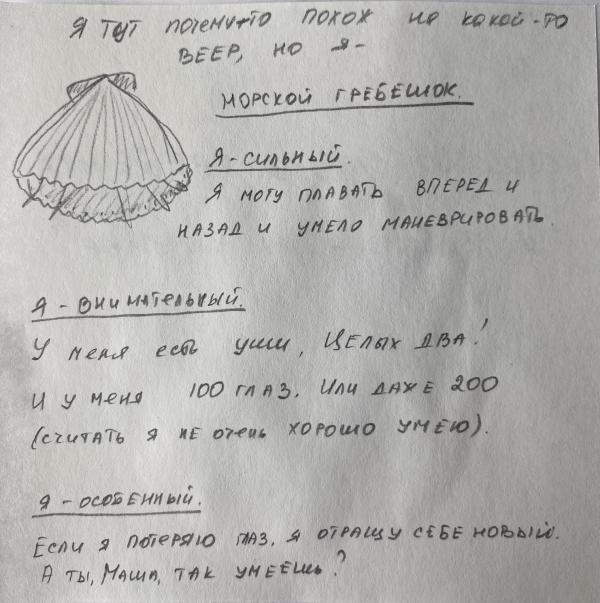 Я тут почему-то похож на какой-то
веер, но я-
морской гребешок.
Я - сильный.
Я могу плавать вперед и
назад и умело маневрировать.
Я - внимательный.
У меня есть уши, целых два!
И у меня 100 глаз. Или даже 200
(считать я не очень хорошо умею).
Я - особенный.
Если я потеряю глаз, я отращу себе новый.
А ты, Маша, так умеешь?